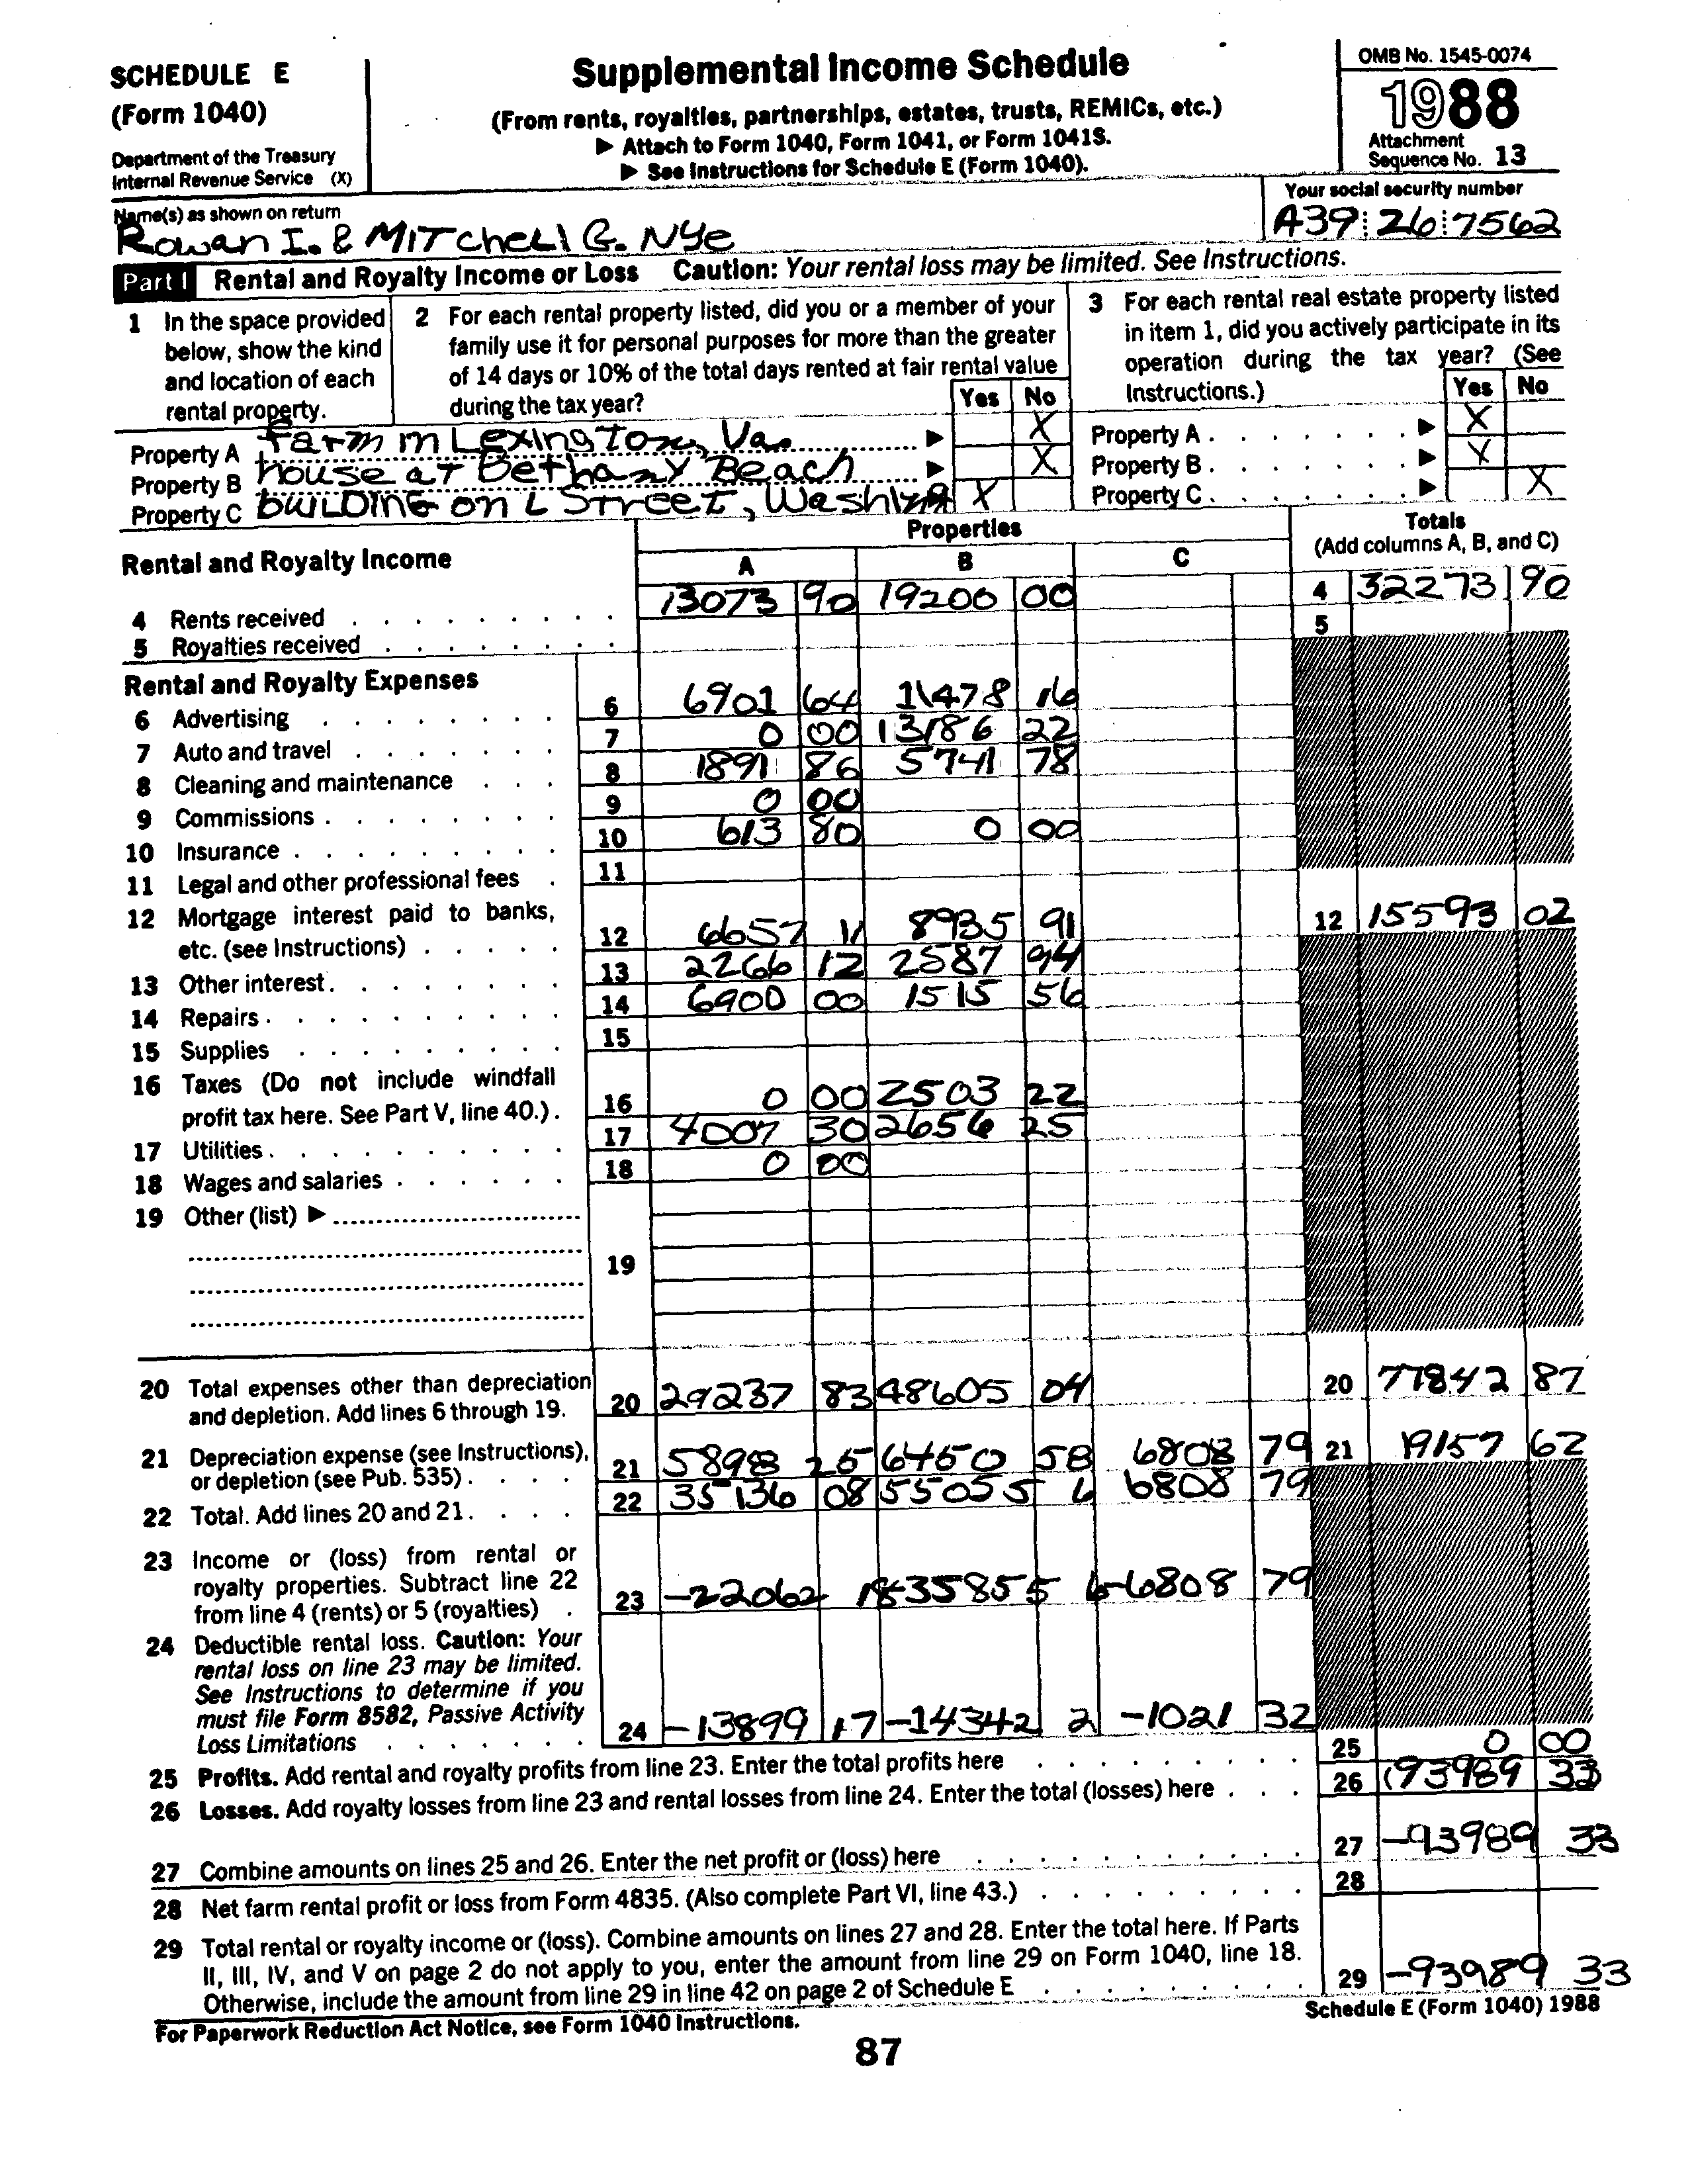 SCHEDULE E
(Form 1040)
Department of the Treasury
Internal Revenue Service (X)
Supplemental Income Schedule
(From rents, royalties, partnerships, estates, trusts, REMICs, etc.)
▶ Attach to Form 1040, Form 1041, or Form 1041S.
▶ See Instructions for Schedule E (Form 1040).
OMB No. 1545-0074
1988
Attachment
Sequence No. 13
Name(s) as shown on return
Rowan I. & MITcheLl G. Nye
Your social security number
A39 26 7562
Part I Rental and Royalty Income or Loss Caution: Your rental loss may be limited. See Instructions.
1 In the space provided
below, show the kind
and location of each
rental property.
2 For each rental property listed, did you or a member of your
family use it for personal purposes for more than the greater
of 14 days or 10% of the total days rented at fair rental value
during the tax year? Yes No
3 For each rental real estate property listed
in item 1, did you actively participate in its
operation during the tax year? (See
Instructions.) Yes No
Property A Farm in Lexington, Va. ▶ X Property A ▶ X
Property B house at Bethany Beach ▶ X Property B ▶ X
Property C buiLDING on L Street, X Property C ▶ X
Rental and Royalty Income
Properties
A B C
Totals
(Add columns A, B, and C)
4 Rents received 13073 90 19200 00 4 32273 90
5 Royalties received 5
Rental and Royalty Expenses
6 Advertising 6 6901 64 11478 16
7 Auto and travel 7 0 00 13186 22
8 Cleaning and maintenance 8 1891 86 5741 78
9 Commissions 9 0 00
10 Insurance 10 613 80 0 00
11 Legal and other professional fees 11
12 Mortgage interest paid to banks,
etc. (see Instructions) 12 6657 11 8935 91 12 15593 02
13 Other interest 13 2266 12 2587 94
14 Repairs 14 6900 00 1515 56
15 Supplies 15
16 Taxes (Do not include windfall
profit tax here. See Part V, line 40.) 16 0 00 2503 22
17 Utilities 17 4007 30 2656 25
18 Wages and salaries 18 0 00
19 Other (list) ▶
19
20 Total expenses other than depreciation
and depletion. Add lines 6 through 19. 20 29237 83 48605 04 20 77842 87
21 Depreciation expense (see Instructions),
or depletion (see Pub. 535) 21 5898 25 6450 58 6808 79 21 19157 62
22 Total. Add lines 20 and 21 22 35136 08 55055 6 6808 79
23 Income or (loss) from rental or
royalty properties. Subtract line 22
from line 4 (rents) or 5 (royalties) 23 -22062 18 -35855 6 -6808 79
24 Deductible rental loss. Caution: Your
rental loss on line 23 may be limited.
See Instructions to determine if you
must file Form 8582, Passive Activity
Loss Limitations 24 -13899 17 -14342 2 -1021 32
25 Profits. Add rental and royalty profits from line 23. Enter the total profits here 25 0 00
26 Losses. Add royalty losses from line 23 and rental losses from line 24. Enter the total (losses) here 26 (93989 33
27 Combine amounts on lines 25 and 26. Enter the net profit or (loss) here 27 -93989 33
28 Net farm rental profit or loss from Form 4835. (Also complete Part VI, line 43.) 28
29 Total rental or royalty income or (loss). Combine amounts on lines 27 and 28. Enter the total here. If Parts
II, III, IV, and V on page 2 do not apply to you, enter the amount from line 29 on Form 1040, line 18.
Otherwise, include the amount from line 29 in line 42 on page 2 of Schedule E 29 -93989 33
For Paperwork Reduction Act Notice, see Form 1040 Instructions.
Schedule E (Form 1040) 1988
87